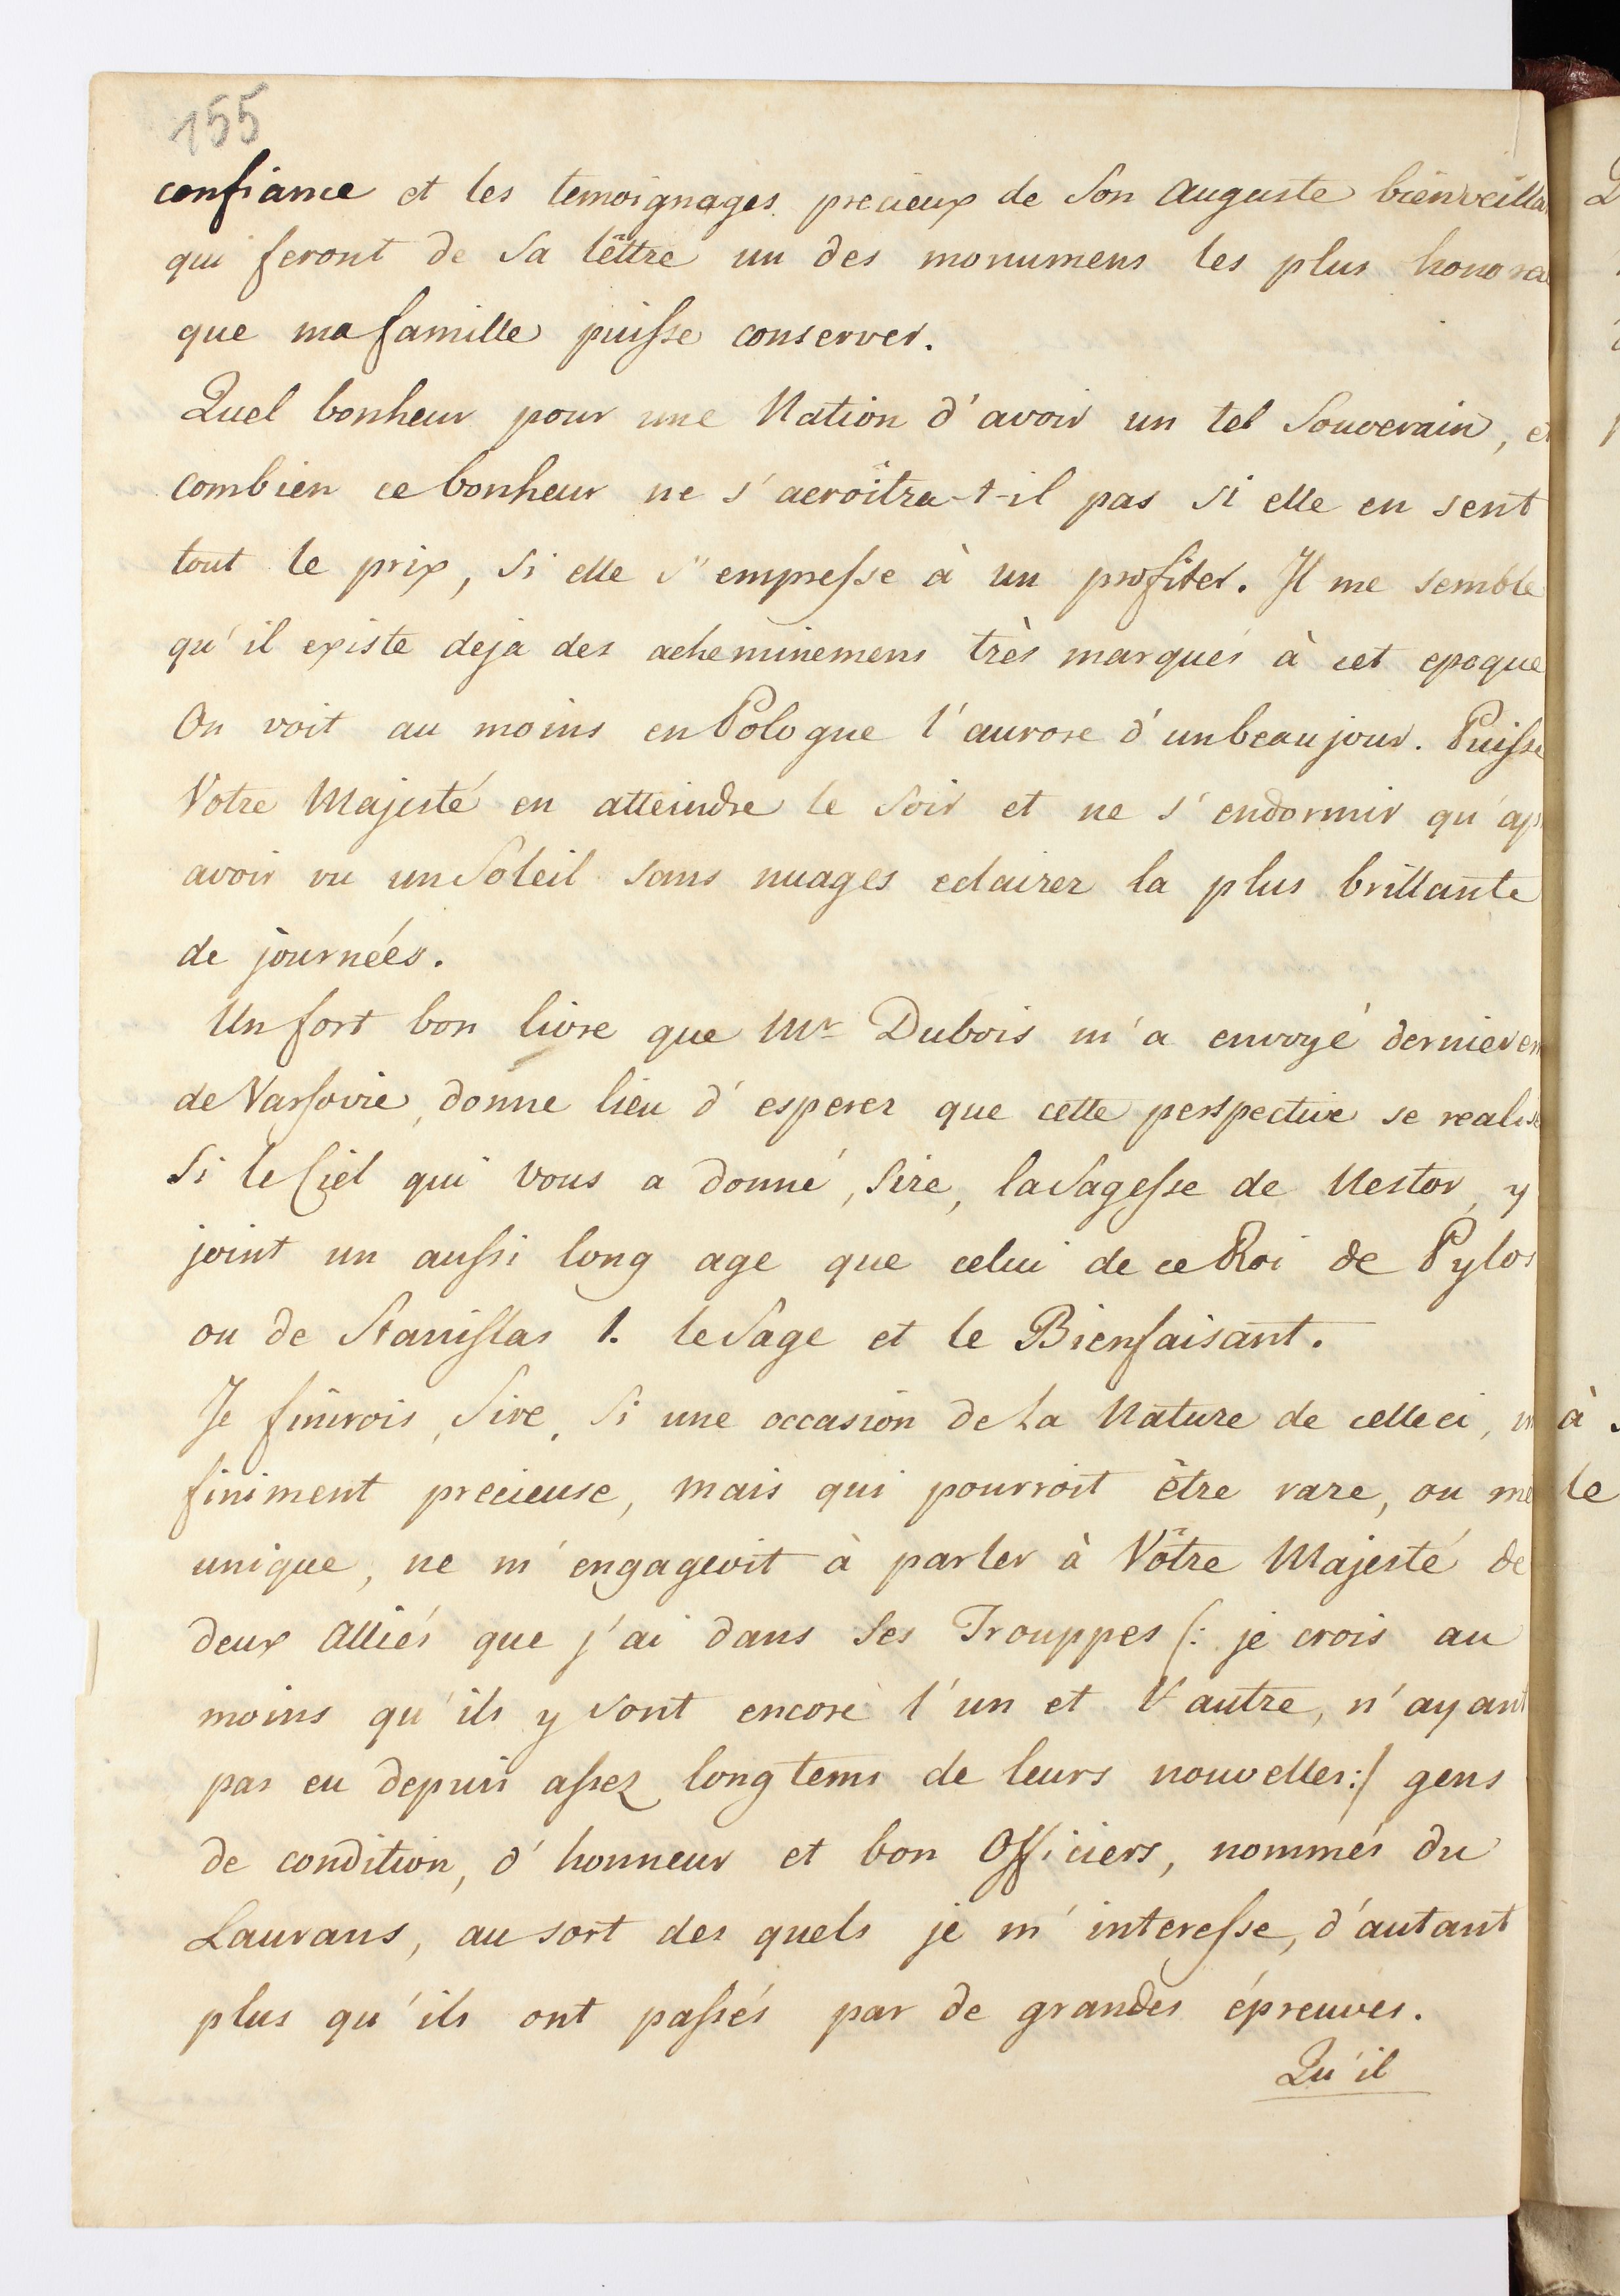 155
confiance et les temoignages precieux de Son Auguste bienveilla
qui feront de Sa lêttre un des monumens les plus honora
que ma famille puisse conserver.
Quel bonheur pour une Nation d'avoir un tel Souverain, et
combien ce bonheur ne s'acroîtra-t-il pas si elle en sent
tout le prix, si elle s'empresse à un profiter. Il me semble
qu'il existe deja des acheminemens très marqués à cet epoque
On voit au moins en Pologne l'aurore d'un beau jour. Puisse
Votre Majesté en atteindre le Soir et ne s'endormir qu'ap
avoir vu un Soleil sans nuages eclairer la plus brillante
de journées.
Un fort bon livre que Mr Dubois m'a envoyé dernierem
de Varsovie, donne lieu d'esperer que cette perspective se realise
Si le Ciel qui Vous a donné, Sire, la Sagesse de Nestor, y
joint un aussi long age que celui de ce Roi de Pylos
ou de Stanislas 1. le Sage et le Bienfaisant.
Je finirois, Sire, Si une occasion de la Nature de celle ci, in
finiment precieuse, mais qui pourroit être rare, ou me
unique, ne m'engageoit à parler à Vôtre Majesté de
deux Alliés que j'ai dans Ses Trouppes (: je crois au
moins qu'ils y sont encore l'un et l'autre, n'ayant
pas eu depuis assez longtems de leurs nouvelles :) gens
de condition, d'honneur et bon Officiers, nommés du
Laurans, au sort des quels je m'interesse, d'autant
plus qu'ils ont passés par de grandes épreuves.
Qu'il
à
le